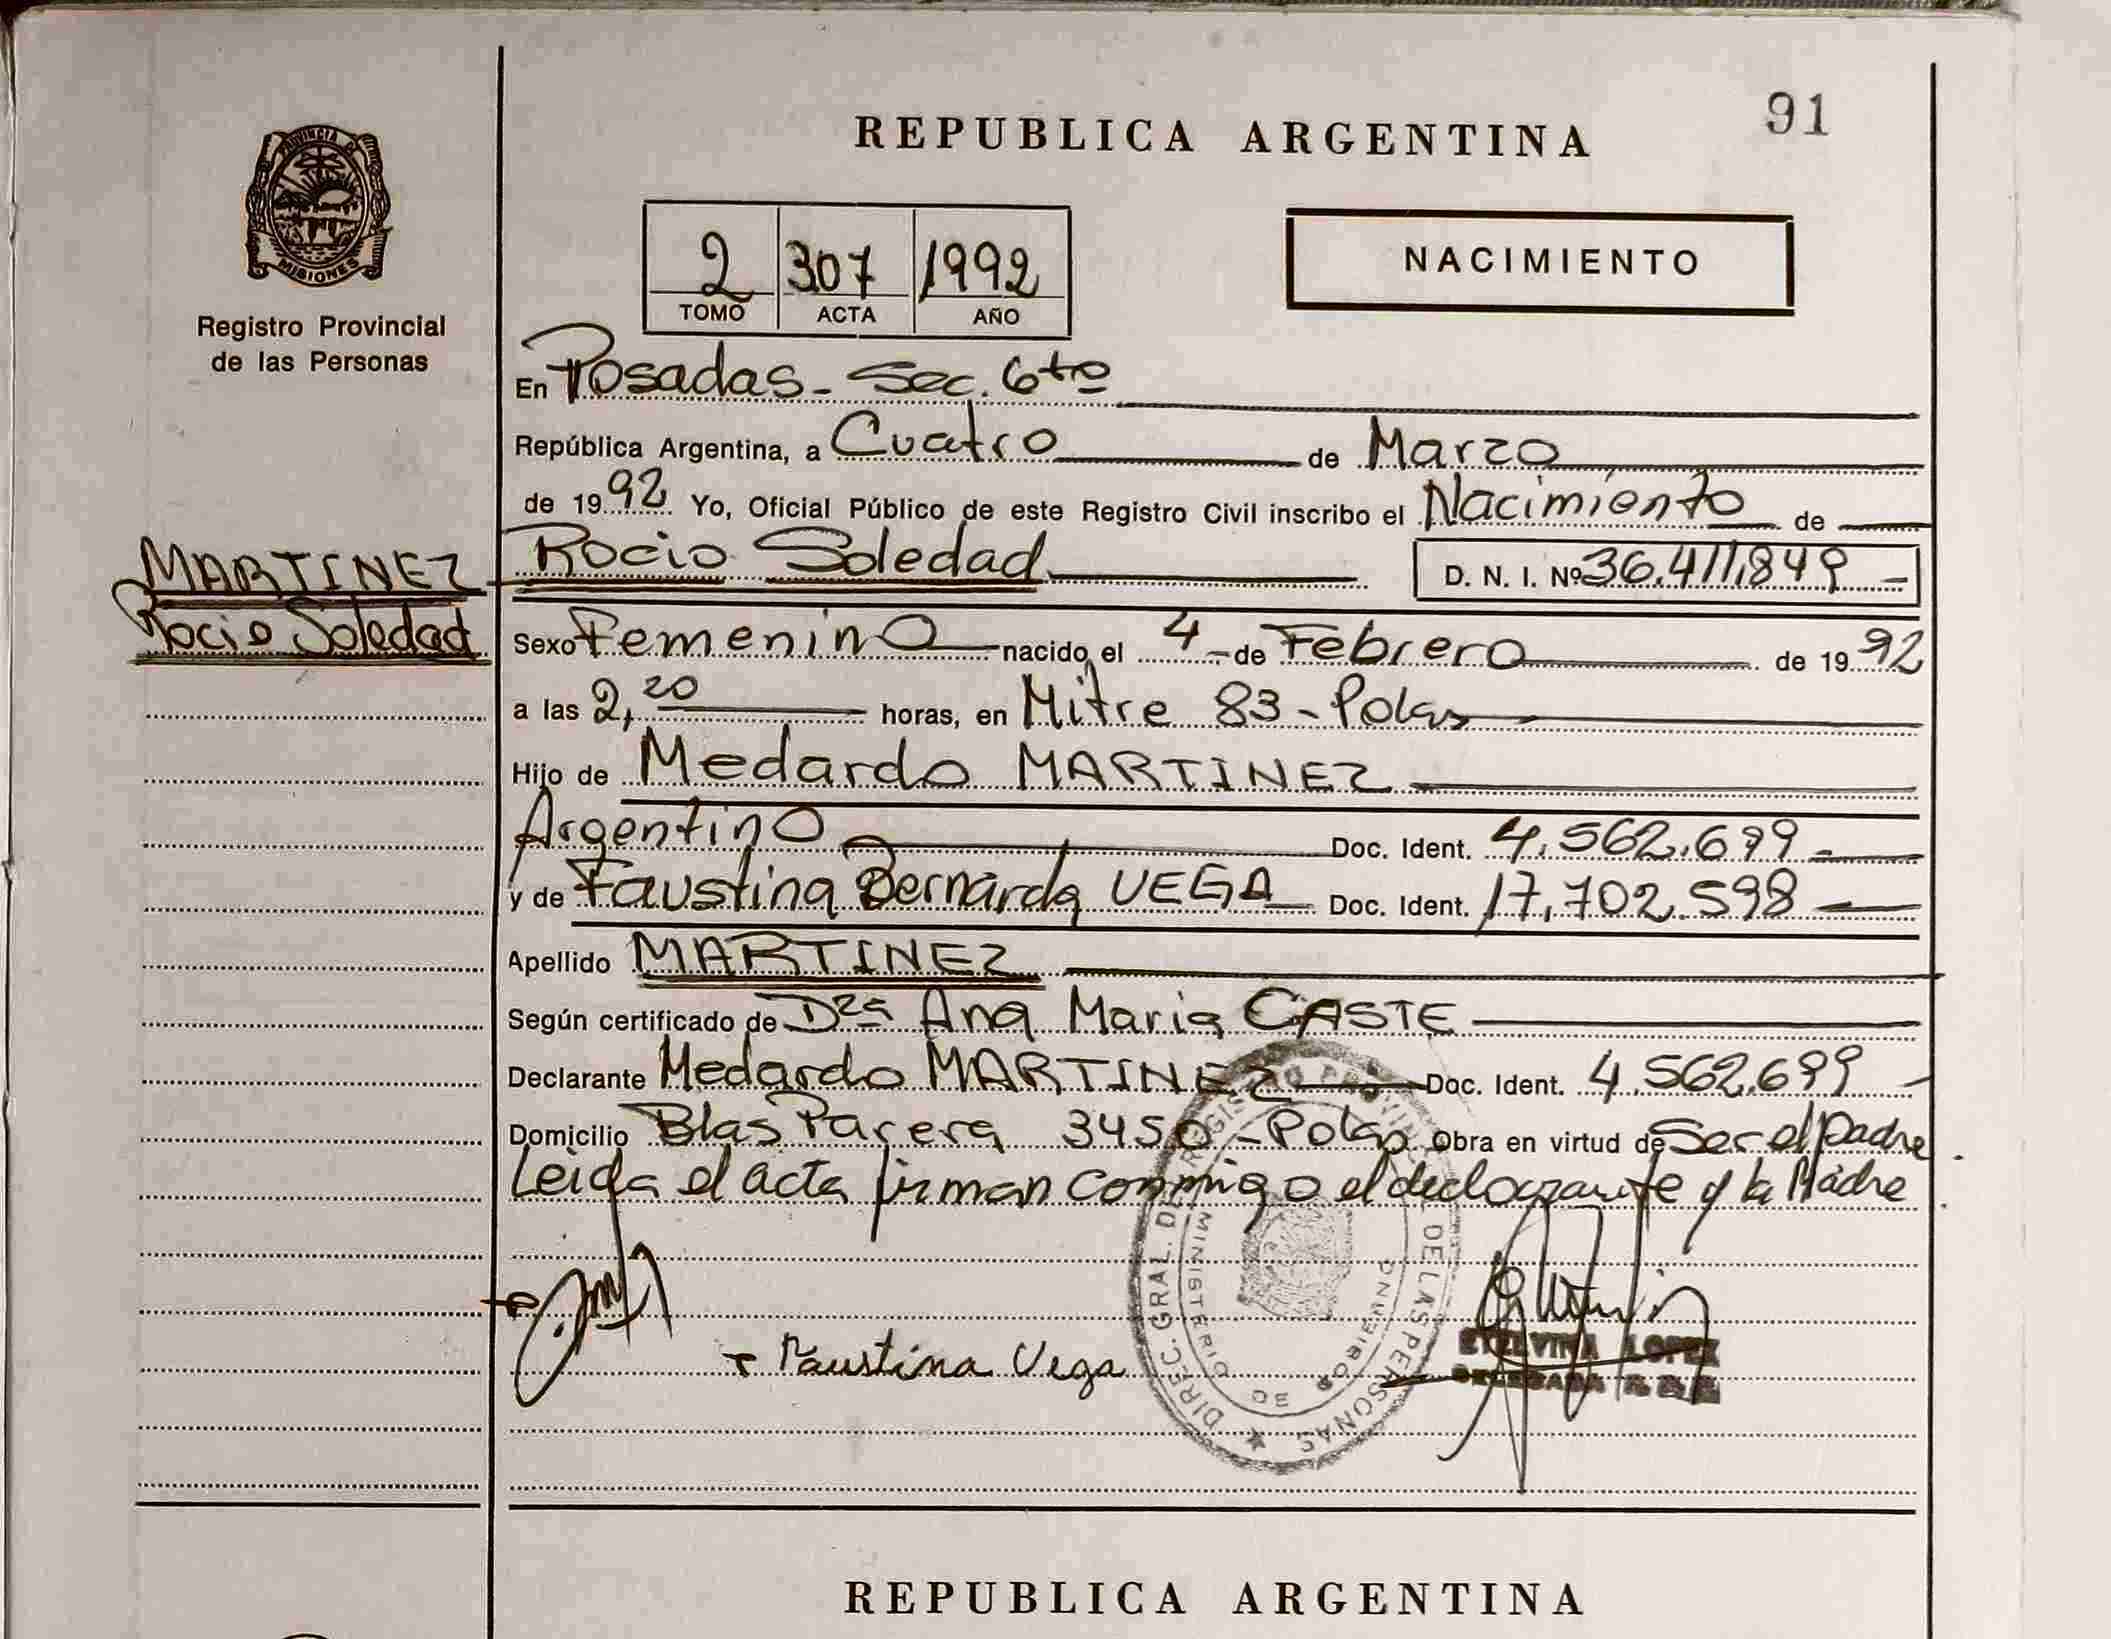 91
REPUBLICA ARGENTINA
PROVINCIA DE
MISIONES
Registro Provincial
de las Personas
2 307 1992
TOMO ACTA AÑO
NACIMIENTO
En Posadas - Sec. 6ta
República Argentina, a Cuatro de Marzo
de 1992 Yo, Oficial Público de este Registro Civil inscribo el Nacimiento de
MARTINEZ
Rocio Soledad
Rocio Soledad D. N. I. Nº 36.411.849
Sexo Femenino nacido el 4 de Febrero de 1992
a las 2,20 horas, en Mitre 83 - Pdas
Hijo de Medardo MARTINEZ
Argentino Doc. Ident. 4.562.699
y de Faustina Bernarda VEGA Doc. Ident. 17.702.598
Apellido MARTINEZ
Según certificado de Dra Ana Maria CASTE
Declarante Medardo MARTINEZ Doc. Ident. 4.562.699
Domicilio Blas Parera 3450 - Pdas Obra en virtud de Ser el padre
Leida el acta firman conmigo el declarante y la Madre
Faustina Vega
DIREC. GRAL. DEL REGISTRO PROVINCIAL DE LAS PERSONAS
MINISTERIO DE GOBIERNO
ETELVINA LOPEZ
DELEGADA
REPUBLICA ARGENTINA